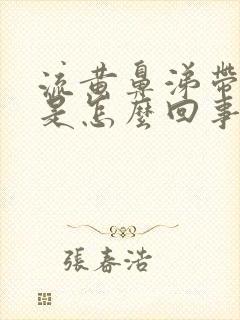 流黄鼻涕帶
是怎麼回事
張春浩